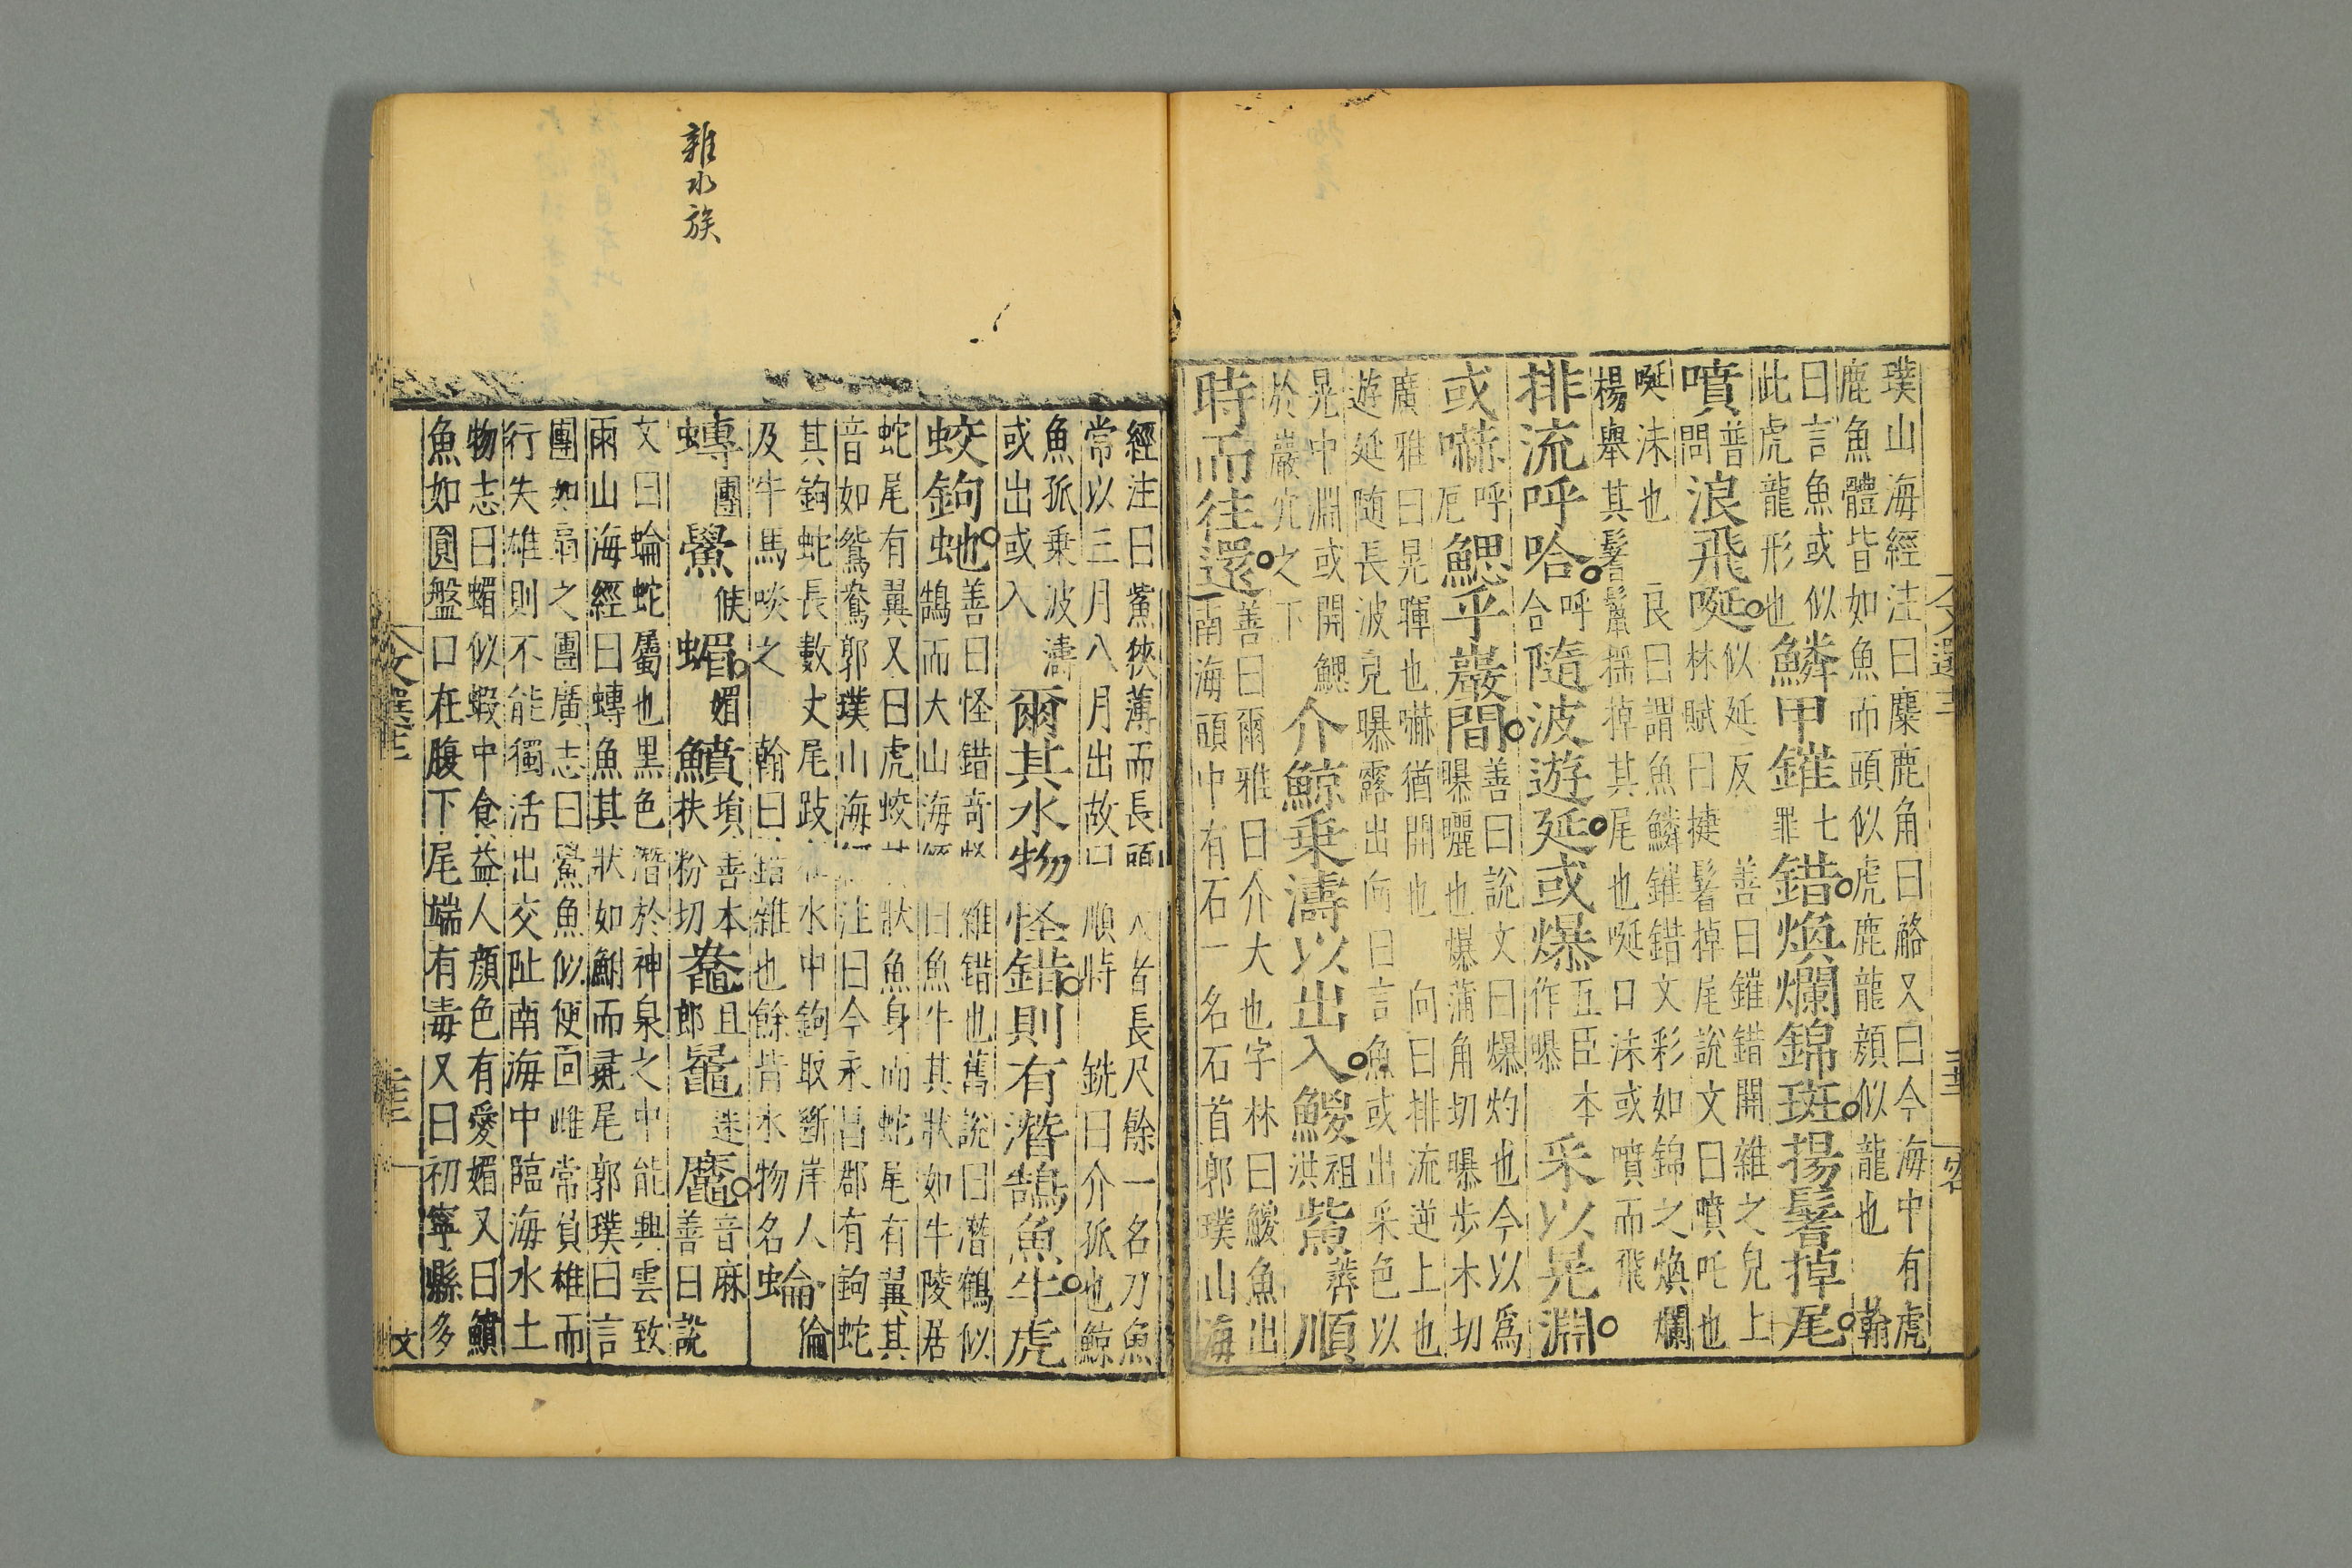 璞山海經注曰麋鹿角曰觡又曰今海中有虎
鹿魚體皆如魚而頭似虎鹿龍顏似龍也 翰
曰言魚或似
此虎龍形也
鱗甲鏙
七
罪
錯煥爛錦斑揚鬐掉尾
噴
普
問
浪飛唌
似延反
善曰鏙錯開雜之皃上
林賦曰揵鬐掉尾說文曰噴吒也
唌沫也 良曰謂魚鱗鏙錯文彩如錦之煥爛
楊舉其鬐鬣搖掉其尾也唌口沫或噴而飛
排流呼哈
呼
合
隨波遊延或爆
五臣本
作曝
采以晃淵
或嚇
呼
厄
鰓乎巖間
善曰說文曰爆灼也今以爲
曝曬也爆蒲角切曝步木切
廣雅曰晃暉也嚇猶開也 向曰排流逆上也
遊延隨長波皃曝露出向曰言魚或出采色以
晃中淵或開鰓
於巖穴之下
介鯨乘濤以出入鯼
祖
洪
鮆
薺
順
時而往還
善曰爾雅曰介大也字林曰鯼魚出
南海頭中有石一名石首郭璞山海
經注曰鮆狹薄而長頭 大者長尺餘一名刀魚
常以三月八月出故曰 順時 銑曰介孤也鯨
魚孤乘波濤
或出或入
爾其水物怪錯則有潛鵠魚牛虎
蛟鉤虵
善曰怪錯奇怪 雜錯也舊說曰潛鶴似
鵠而大山海經 曰魚牛其狀如牛陵居
蛇尾有翼又曰虎蛟其狀魚身而蛇尾有翼其
音如鴛鴦郭璞山海經注曰今永昌郡有鉤蛇
其鉤蛇長數丈尾跂在水中鉤取斷岸人
及牛馬啖之 翰曰錯雜也餘皆水物名
蜦
倫
𫊻
團
鱟
候
蝞
媚
鱝
墳善本
扶粉切
鼊
且
郎
䵶
迷
䗫
音麻
善曰說
文曰蜦蛇屬也黑色潛於神泉之中能興雲致
雨山海經曰𫊻魚其狀如鮒而彘尾郭璞曰言
團如扇之團廣志曰鱟魚似便面雌常負雄而
行失雄則不能獨活出交阯南海中臨海水土
物志曰蝞似蝦中食益人顏色有愛媚又曰鱝
魚如圓盤口在腹下尾端有毒又曰初寧縣多
雜水族
文